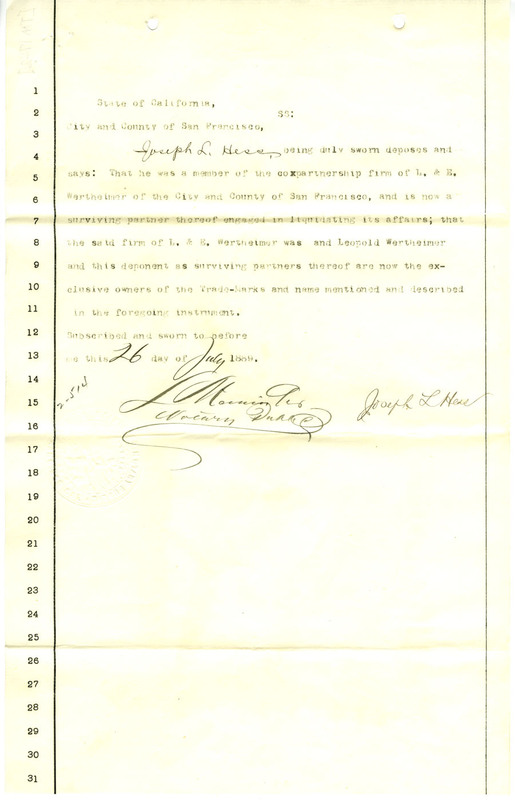 State of California,
SS:
City and County of San Francisco,
Joseph L. Hess, being duly sworn deposes and
says: That he was a member of the coxpartnership firm of L. & E.
Wertheimer of the City and County of San Francisco, and is now a
surviving partner thereof engaged in liquidating its affairs; that
the said firm of L. & E. Wertheimer was and Leopold Wertheimer
and this deponent as surviving partners thereof are now the ex-
clusive owners of the Trade-Marks and name mentioned and described
in the foregoing instrument.
Subscribed and sworn to before
me this 26 day of July 1889.
Joseph L Hess
Notary Public
1
2
3
4
5
6
7
8
9
10
11
12
13
14
15
16
17
18
19
20
21
22
23
24
25
26
27
28
29
30
31